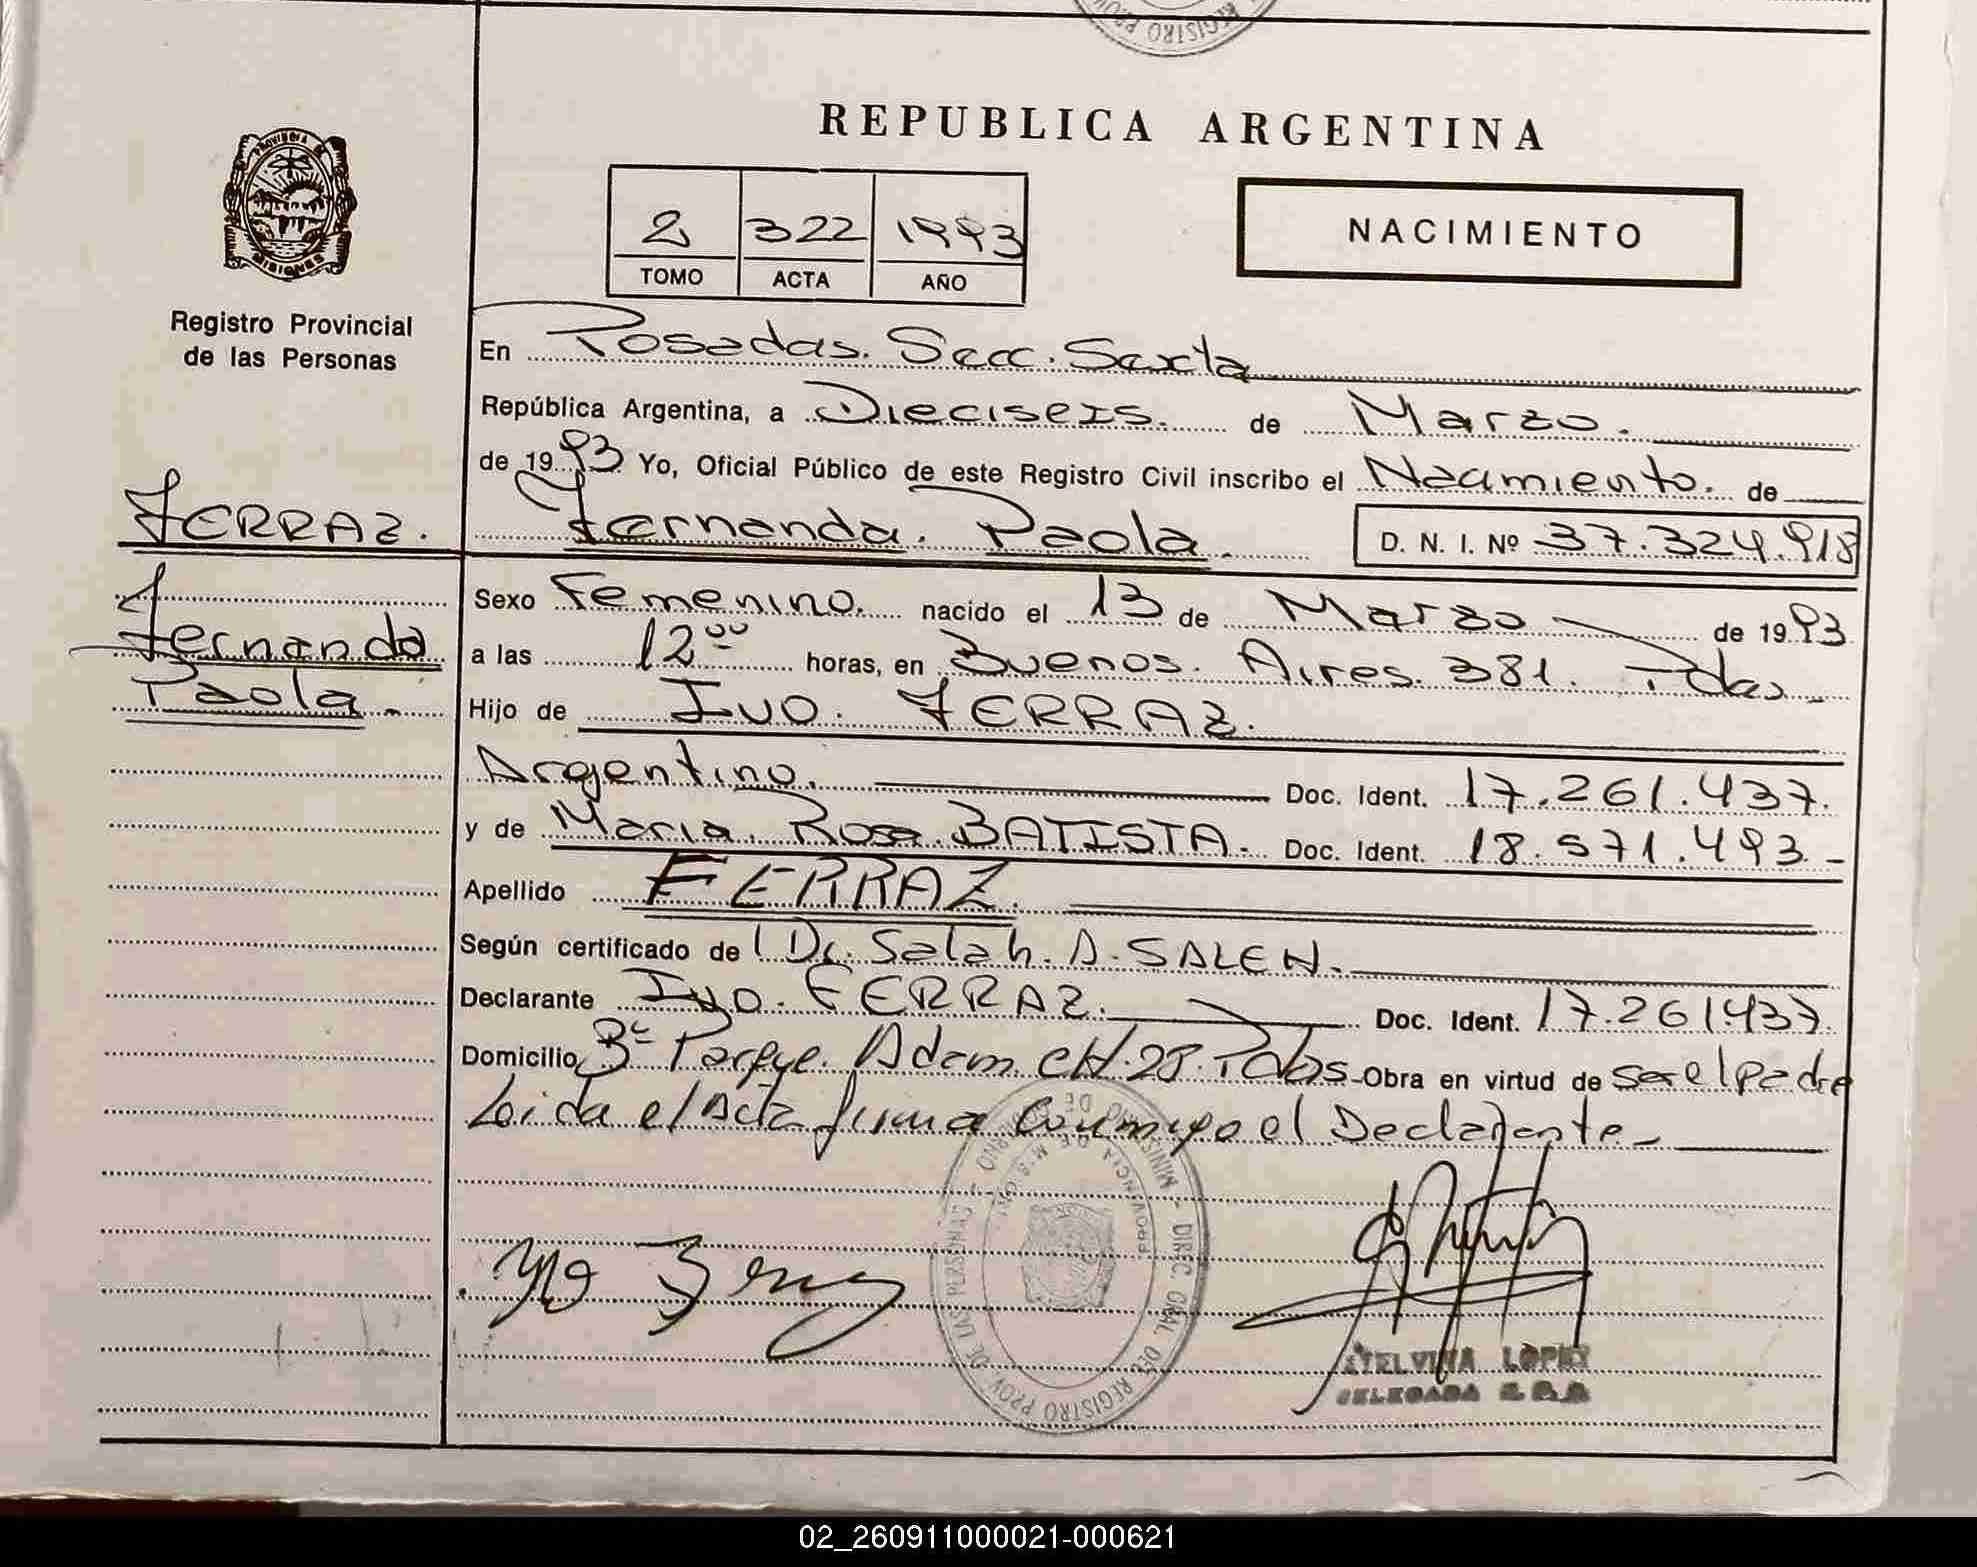 REGISTRO PROV
REPUBLICA ARGENTINA
PROVINCIA
MISIONES
2 322 1993
TOMO ACTA AÑO
NACIMIENTO
Registro Provincial
de las Personas
En Posadas. Secc. Sexta
República Argentina, a Dieciseis. de Marzo.
de 1993 Yo, Oficial Público de este Registro Civil inscribo el Nacimiento. de
FERRAZ.
Fernanda. Paola. D. N. I. Nº 37.324.918
Fernanda
Paola.
Sexo Femenino. nacido el 13 de Marzo de 1993
a las 12⁰⁰ horas, en Buenos. Aires. 381. Pdas.
Hijo de Ivo. FERRAZ.
Argentino. Doc. Ident. 17.261.437.
y de Maria. Rosa BATISTA. Doc. Ident. 18.571.493.-
Apellido FERRAZ.
Según certificado de Dr. Salah. A. SALEH.
Declarante Ivo. FERRAZ. Doc. Ident. 17.261.437.
Domicilio Bº Parque. Adam. CH.28. Pdas Obra en virtud de ser el padre
Leida el Acta firma conmigo el Declarante-
MINISTERIO DE GOBIERNO - DIREC. GRAL. DEL REGISTRO PROV. DE LAS PERSONAS
PROVINCIA DE MISIONES
Ivo Ferraz
ETELVINA LOPEZ
DELEGADA
02_260911000021-000621